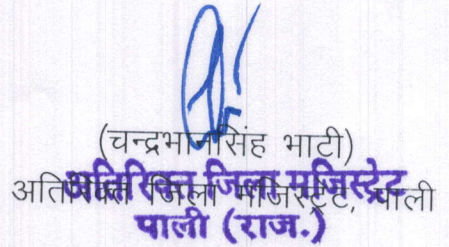 (चन्द्रभानसिंह भाटी)
अतिरिक्त जिला मजिस्ट्रेट, पाली
अतिरिक्त जिला मजिस्ट्रेट
पाली (राज.)